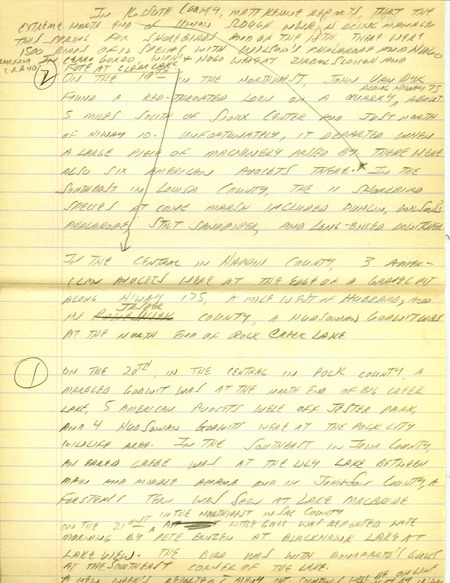 IN KOSSUTH COUNTY, MATT KENNE REPORTS THAT THE
EXTREME NORTH END OF UNION SLOUGH NWR IS BEING MANAGED
THIS SPRING FOR SHOREBIRDS AND ON THE 18TH THERE WERE
1500 BIRDS OF 12 SPECIES WITH WILSON'S PHALAROPE AND HUGO
IN CERRO GORDO, WISN + HUGO WERE AT ZIRBEL SLOUGH AND
FOTE AT CLEAR LAKE
② ON THE 19TH IN THE NORTHWEST, JOHN VAN DYK
ALONG HIWAY 75
FOUND A RED-THROATED LOON ON A QUARRY, ABOUT
5 MILES SOUTH OF SIOUX CENTER AND JUST NORTH
OF HIWAY 10. UNFORTUNATELY, IT DEPARTED WHEN
A LARGE PIECE OF MACHINERY PASSED BY. THERE WERE
ALSO SIX AMERICAN AVOCETS THERE. * IN THE
SOUTHEAST IN LOUISA COUNTY, THE 11 SHOREBIRD
SPECIES AT CONE MARSH INCLUDED DUNLIN, WILSON'S
PHALAROPE, STILT SANDPIPER, AND LONG-BILLED DOWITCHER
IN THE CENTRAL IN HARDIN COUNTY, 3 AMER-
ICAN AVOCETS WERE AT THE EDGE OF A GRAVEL PIT
ALONG HIWAY 175, A MILE WEST OF HUBBARD, AND
IN JASPER COUNTY, A HUDSONIAN GODWIT WAS
AT THE NORTH END OF ROCK CREEK LAKE
① ON THE 20TH, IN THE CENTRAL IN POLK COUNTY, A
MARBLED GODWIT WAS AT THE NORTH END OF BIG CREEK
LAKE, 5 AMERICAN AVOCETS WERE OFF JESTER PARK,
AND 4 HUDSONIAN GODWITS WERE AT THE POLK CITY
WILDLIFE AREA. IN THE SOUTHEAST IN IOWA COUNTY,
AN EARED GREBE WAS AT THE LILY LAKE BETWEEN
MAIN AND MIDDLE AMANA AND IN JOHNSON COUNTY, A
FORSTER'S TERN WAS SEEN AT LAKE MACBRIDE
IN THE NORTHWEST IN SAC COUNTY
ON THE 21ST A LITTLE GULL WAS REPORTED LATE
MORNING BY PETE ERNZEN AT BLACKHAWK LAKE AT
LAKE VIEW. THE BIRD WAS WITH BONAPARTE'S GULLS
AT THE SOUTHEAST CORNER OF THE LAKE.